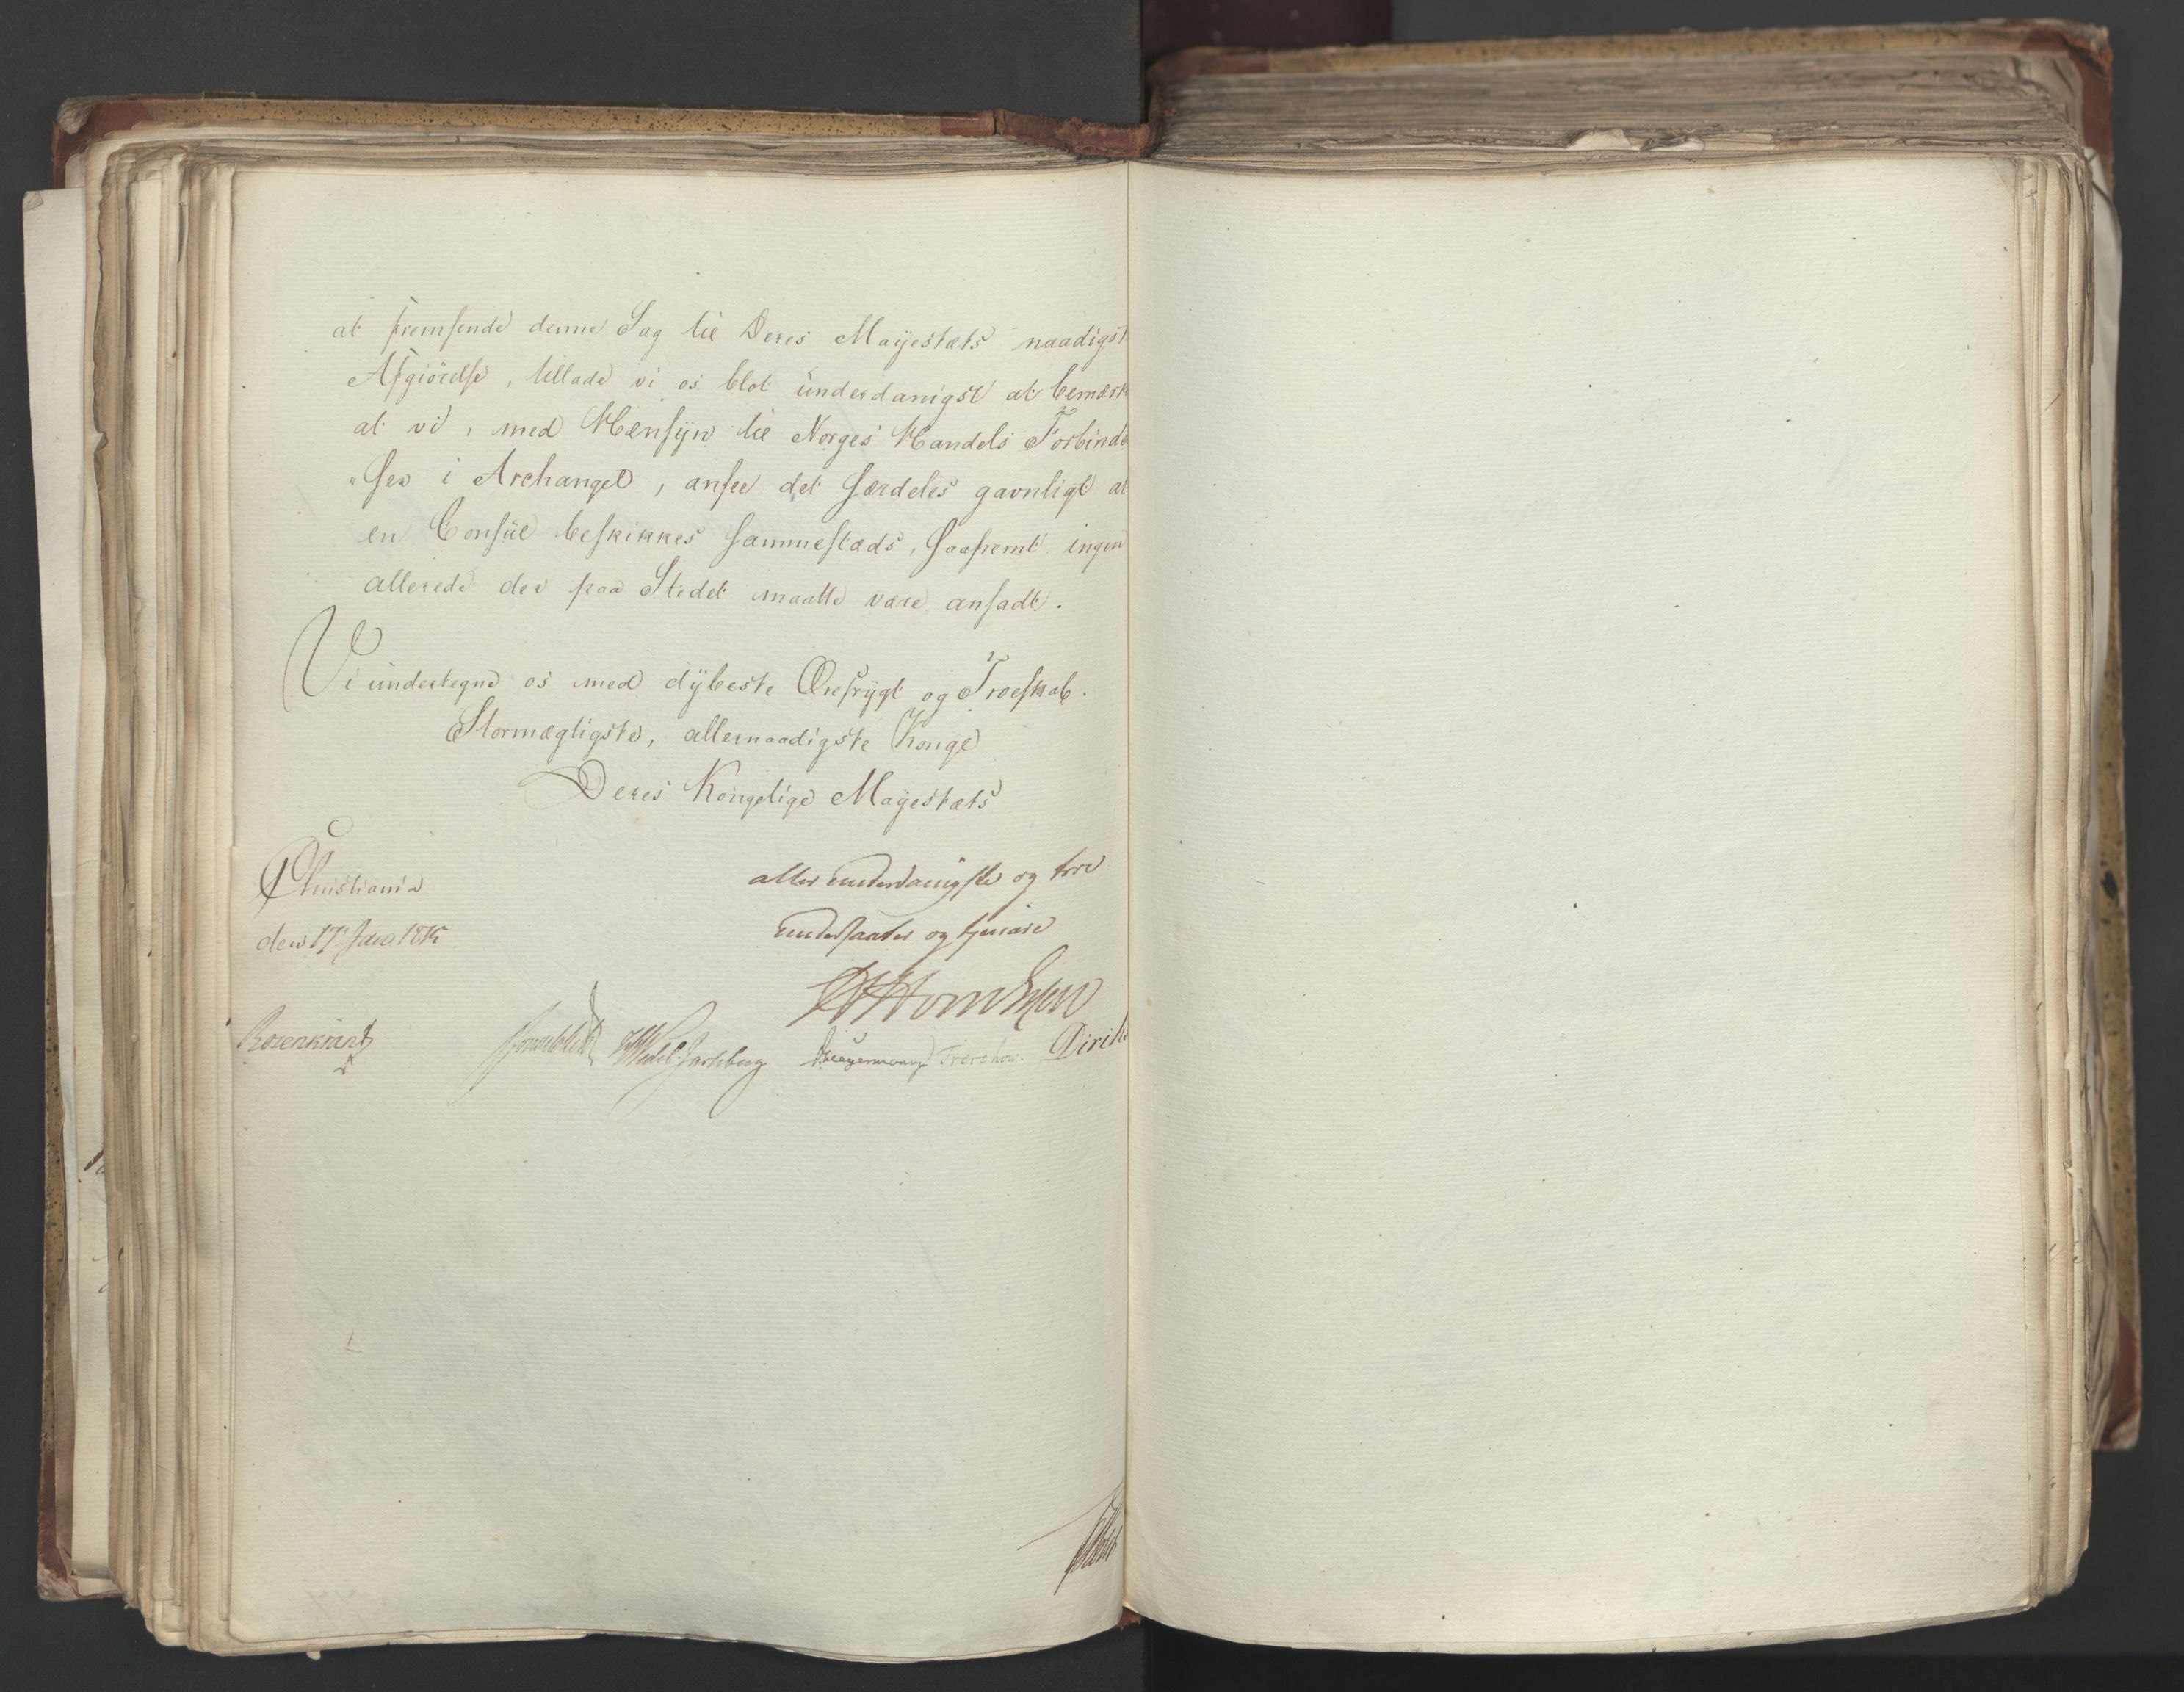 at fremsende denne Sag til Deres Mayestæts naadigst
Afgiörelse, tillade vi os blot underdanigst at bemærk
at vi, med Hensyn til Norges Handels Forbindel
"ser i Archangel, ansee det særdeles gavnligt at
en Consul beskikkes sammestæds, saafremt ingen
allerede der paa Stedet maatte være ansadt.
Vi undertegne os med dÿbeste Ærefrÿgt og Troeskab.
Stormægtigste, allernaadigste Konge
Deres Kongelige Mayestæts
Christiania
allerunderdanigste og troe
den 17 Jan 1815
undersaatter og tjenere
Rosenkrantz
Sommerhielm
Wedel Jarlsberg
Hegermann
Treschow.
Dirik